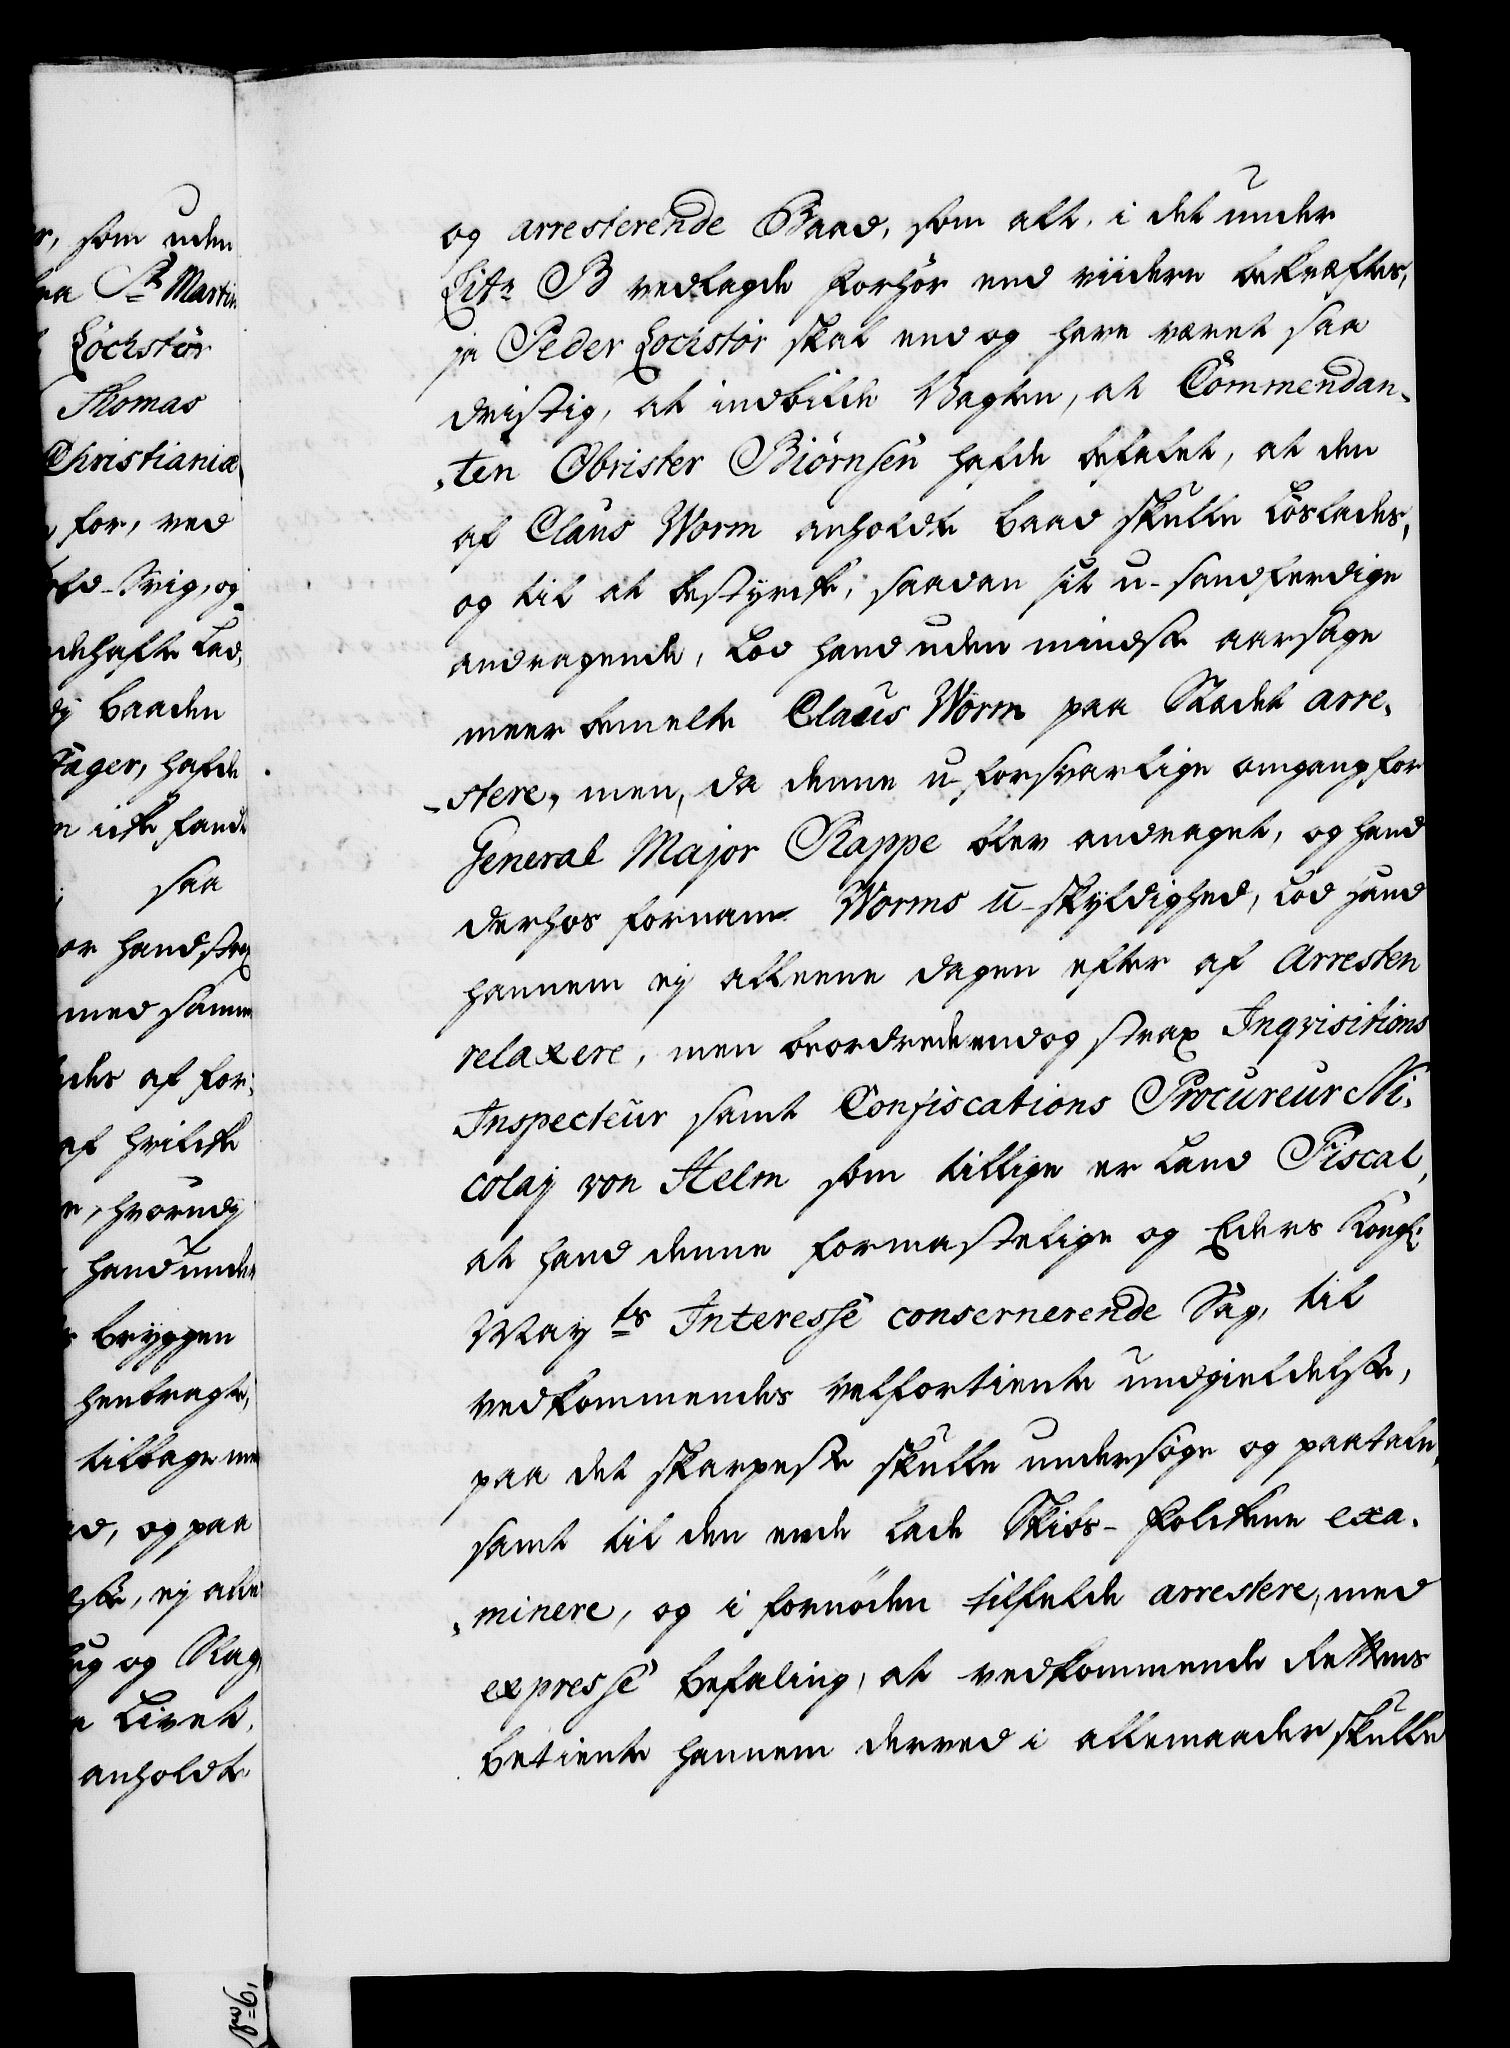 r, som uden
ra St Martin
Löchstör
Thomas
Christiania
for, ved
old-Svig, og
dehafte Lad,
dÿ baaden
Tager, hafde
n icke fandt
saa
or hand strax
med samme
des af for,
af hvilcke
e, hvorudj
hand under
s bryggen
henbragte,
tilbage me
d, og paa
ste, ej alle
og Slag,
e Livet,
anholdte
og arresterende Baad, som alt, i det under
Lit. B vedlagde forhör end viidere bekræftes,
ja Peder Lochstör skal end og have været saa
dristig, at indbilde Vagten, at Commendan,
,ten Obrister Biörnsen hafde befalet, at den
af Claus Worm anholdte baad skulle Löslades,
og til at bestyrcke, saadan sit u-sandferdige
andragende, lod hand uden mindste aarsage
meer bemelte Claus Worm paa Stedet arre,
-stere, men, da denne u-forsvarlige omgang for
General Major Rappe blev andraget, og hand
derhos fornam Worms u-skyldighed, lod hand
hannem ej alleene dagen efter af Arresten
relaxere, men beordrede endog strax Inqvisitions
Inspecteur samt Confiscations Procureur Ni,
colaj von Helm som tillige er Land Fiscal,
at hand denne formastelige og Eders Kongl:
May:ts Interesse consernerende Sag, til
vedkommendes velfortiente undgieldelse,
paa det skarpeste skulle undersöge og paatale,
samt til den ende lade Skibs-folckene exa,
,minere, og i fornöden tilfelde arrestere, med
expresse befaling, at vedkommende Rettens
betiente hannem derved i allemaader skulle